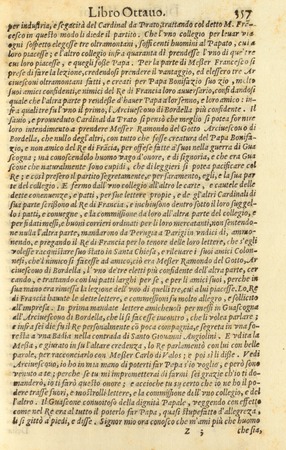 Libro Ottavo. 337
per industria, e segacità del Cardinal da Prato, trattando col detto M. Fran-
cesco in questo modo li diede il partito: Che l'vno collegio per leuar via
ogni sospetto elegesse tre oltramontani, sofficienti huomini al Papato, cui a
loro piacesse, e l'altro collegio infra quaranta dì prendesse l'vno di que' tre
cui loro piacesse, e quegli fosse Papa. Per la parte di Messer Francesco si
prese di fare la lezione, credendosi prendere il vantaggio, ed elesse tre Ar-
ciuescoui oltramontani fatti, e creati per Papa Bonifazio suo zio, molto
suoi amici confidenti, e nimici del Re di Francia loro auuersario, confidandosi
quale che l'altra parte prendesse d'hauer Papa a lor senno, e loro amico: in-
tra quali tre fu l'vno il primo, l'Arciuescouo di Bordella più confidente. Il
sauio, e proueduto Cardinal da Prato si pensò che meglio si potea fornire
loro intendimento a prendere Messer Ramondo del Gotto Arciuescouo di
Bordella, che nullo degl'altri, con tutto che fosse creatura del Papa Bonifa-
zio, e non amico del Re di Francia, per offese fatte a' suoi nella guerra di Gua-
scogna; ma conoscendolo huomo vago d'onore, e di signoria, e che era Gua-
scone che naturalmente sono cupidi, che di leggieri si potea pacificare col
Re; e così presono il partito segretamente, e per saramento, egli, e la sua par-
te del collegio. E fermo dall'vno collegio all'altro le carte, e cautele delle
dette conuenenze, e patti, per sue lettere proprie, e de gl'altri Cardinali di
sua parte scrissono al Re di Francia; e inchiusono dentro sotto il loro suggel-
lo i patti, e conuegne, e la commissione da loro all'altra parte del collegio, e
per fidati messi, e buoni corrieri ordinati per li loro mercatanti, non sentendo-
ne nulla l'altra parte, mandarono da Perugia a Parigi in vndici dì, ammo-
nendo, e pregando il Re di Francia per lo tenore delle loro lettere, che s'egli
volesse racquistare suo stato in Santa Chiesa, e rileuare i suoi amici Colon-
nesi, che'l nimico si facesse ad amico, ciò era Messer Ramondo del Gotto, Ar-
ciuescouo di Bordella, l'vno de' tre eletti più confidenti dell'altra parte, cer-
cando, e trattando con lui patti larghi per se, e per li amici suoi, perche in
sua mano era rimessa la lezione dell'vno di quelli tre, cui a lui piacesse. Lo Re
di Francia hauute le dette lettere, e commissioni fu molto allegro, e sollicito
all'impresa. In prima mandate lettere amicheuoli per messi in Guascogna
all'Arciuescouo di Bordella, che li si facesse incontro, che li volea parlare:
e infra sei dì fu il Re personalmente cò poca compagnia, e segreta in vna fo-
resta a vna Badia nella contrada di Santo Giouanni Angiolini. E vdita la
Messa, e giurato in su l'altare credenza, lo Re parlamentò con lui con belle
parole, per racconciarlo con Messer Carlo di Valos; e poi sì li disse. Vedi
Arciuescouo, io ho in mia mano di poterti far Papa s'io voglio, e però sono
venuto a te, perche se tu mi imprometterai di farmi sei grazie ch'io ti do-
manderò, io ti farò questo onore; e acciocche tu sia certo che io ne ho il
podere, trasse fuori, e mostrogli le lettere, e la commessione dell'vno collegio, e del-
l'altro. Il Guascone conuoitoso della dignità Papale, veggendo così effetto
come nel Re era al tutto il poterlo far Papa, quasi stupefatto d'allegrezza,
li si gittò a' piedi, e disse. Signor mio ora conosco che m'ami più che huomo
Z 3 che sia,